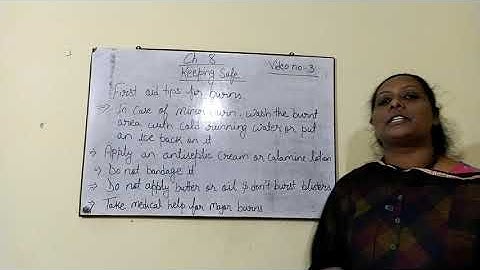 Ch 8
Keeping Safe
Video no-3
First aid tips for burns
→ In case of minor burn, wash the burnt
area with cold running water or put
an Ice pack on it
→ Apply an antiseptic cream or calamine lotion
→ Do not bandage it
→ Do not apply butter or oil & don't burst blisters
→ Take medical help for Major burns